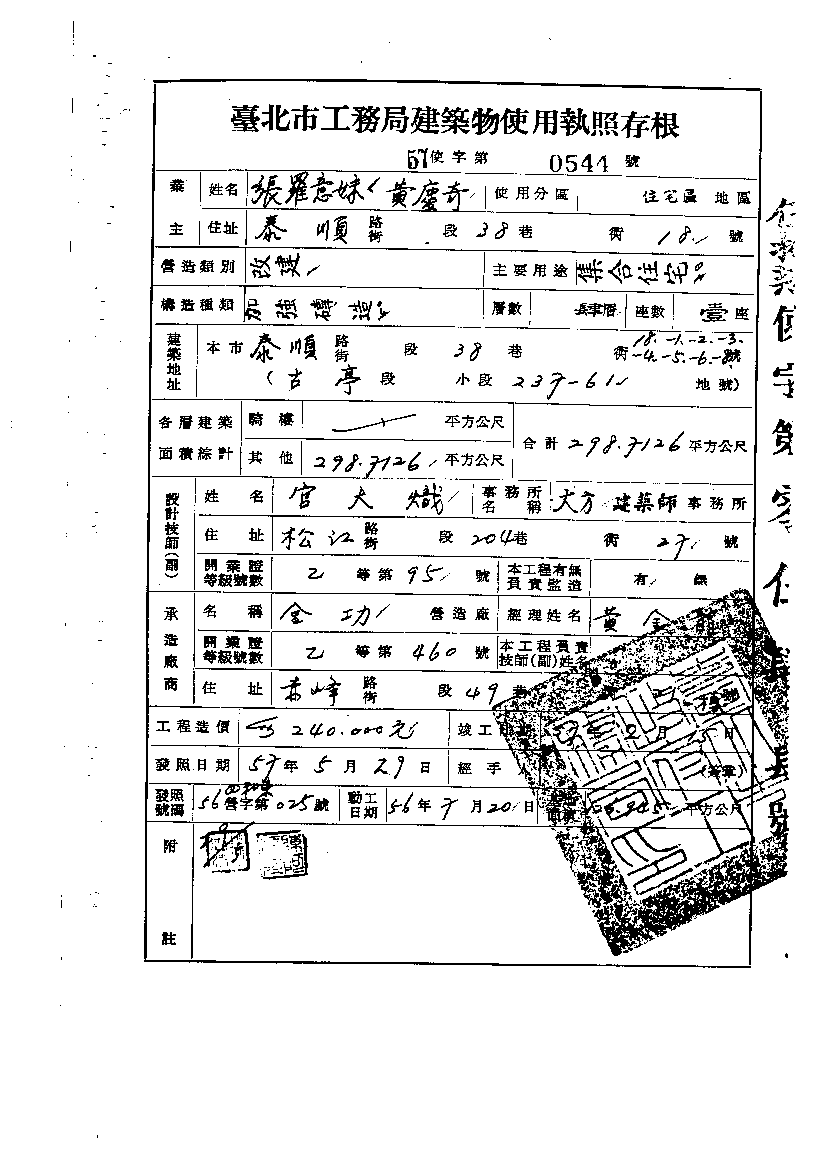 臺北市工務局建築物使用執照存根
57使字第 0544 號
業主 姓名 張羅意妹 黃慶奇 使用分區 住宅區 地區
住址 泰順 路街 段 38 巷 衖 18 號
營造類別 改建 主要用途 集合住宅
構造種類 加強磚造 層數 座數 壹 座
建築地址 本市 泰順 路街 段 38 巷 衖 18.-1.-2.-3.-4.-5.-6.-8號
(古亭段 小段 237-61 地號)
各層建築面積綜計 騎樓 平方公尺 合計 298.7126 平方公尺
其他 298.7126 平方公尺
設計技師(副) 姓名 宮大熾 事務所名稱 大方 建築師 事務所
住址 松江 路街 段 204巷 衖 27 號
開業證等級號數 乙 等第 95 號 本工程有無負責監造 有 無
承造廠商 名稱 金功 營造廠 經理姓名 黃金
開業證等級號數 乙 等第 460 號 本工程負責技師(副)姓名
住址 赤峰 路街 段 49 巷 號
工程造價 240.000元 竣工 年 2 月 15 日
發照日期 57年 5 月 29 日 經手 (簽章)
發照號碼 56營字第025號 動工日期 56年 7 月 20日 平方公尺
附註